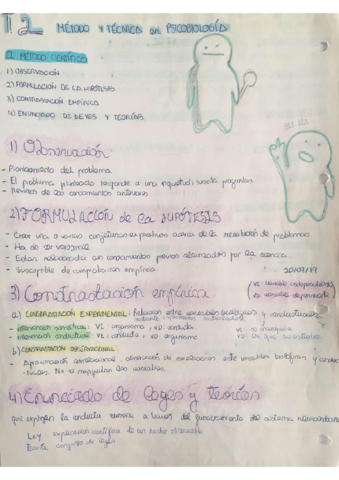 T.2 MÉTODO Y TÉCNICA en PSICOBIOLOGÍA
EL MÉTODO CIENTÍFICO
1) OBSERVACIÓN
2) FORMULACIÓN DE LA HIPÓTESIS
3) CONTRASTACIÓN EMPÍRICA
4) ENUNCIADO DE LEYES Y TEORÍAS
1) Observación
- Planteamiento del problema
- El problema planteado responde a una inquietud, suscita preguntas
- Revisión de los conocimientos anteriores
2) FORMULACIÓN de la HIPÓTESIS
- Crear una o varias conjeturas acerca de la resolución de problemas.
- Ha de ser
- Están relacionadas con conocimientos previos alcanzados por la ciencia.
- Susceptible de comprobación empírica
3) Contrastación empírica
(VI: variable independiente)
VD: variable dependiente)
a) CONTRASTACIÓN EXPERIMENTAL: Relación entre variables biológicas y conductuales
- intervención somática: VI: organismo, VD: conducta
- intervención conductual: VI: conducta, VD: organismo
b) CONTRASTACIÓN
- Aproximación correlacional, obtención de correlación entre variables biológicas y conduc-
tuales. No se manipulan las variables.
4) Enunciado de leyes y teorías
que expliquen la conducta humana a través del funcionamiento del sistema neuroendocrino
Ley: explicación científica de un hecho
Teoría: conjunto de leyes